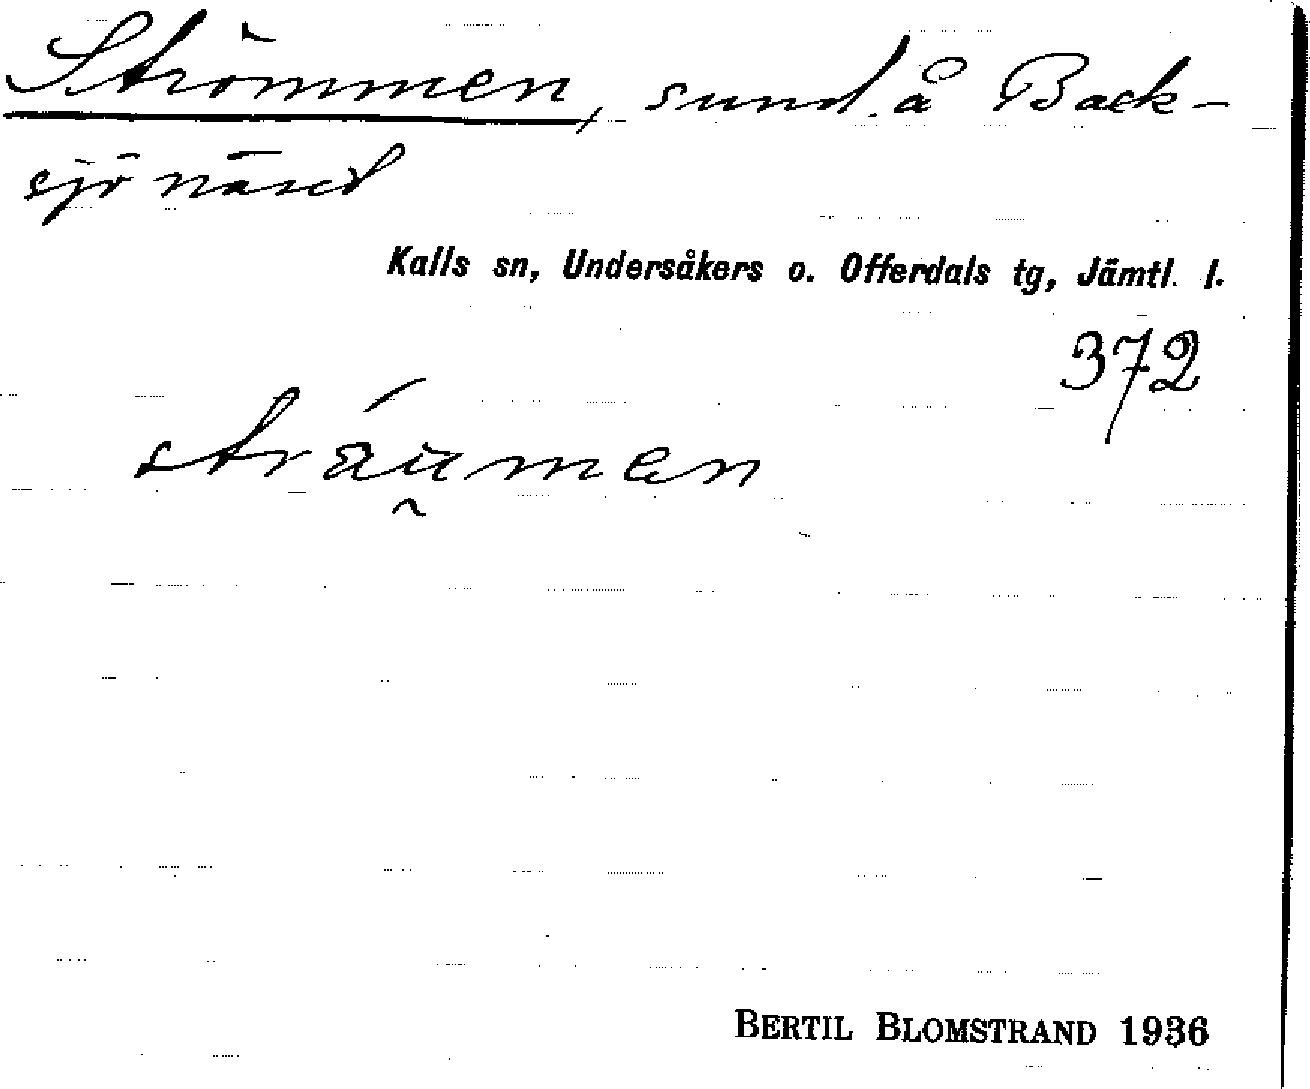 Strömmen, sund å Back-
sjönäset
Kalls sn, Undersåkers o. Offerdals tg, Jämtl. l.
372
stráu̯men
BERTIL BLOMSTRAND 1936